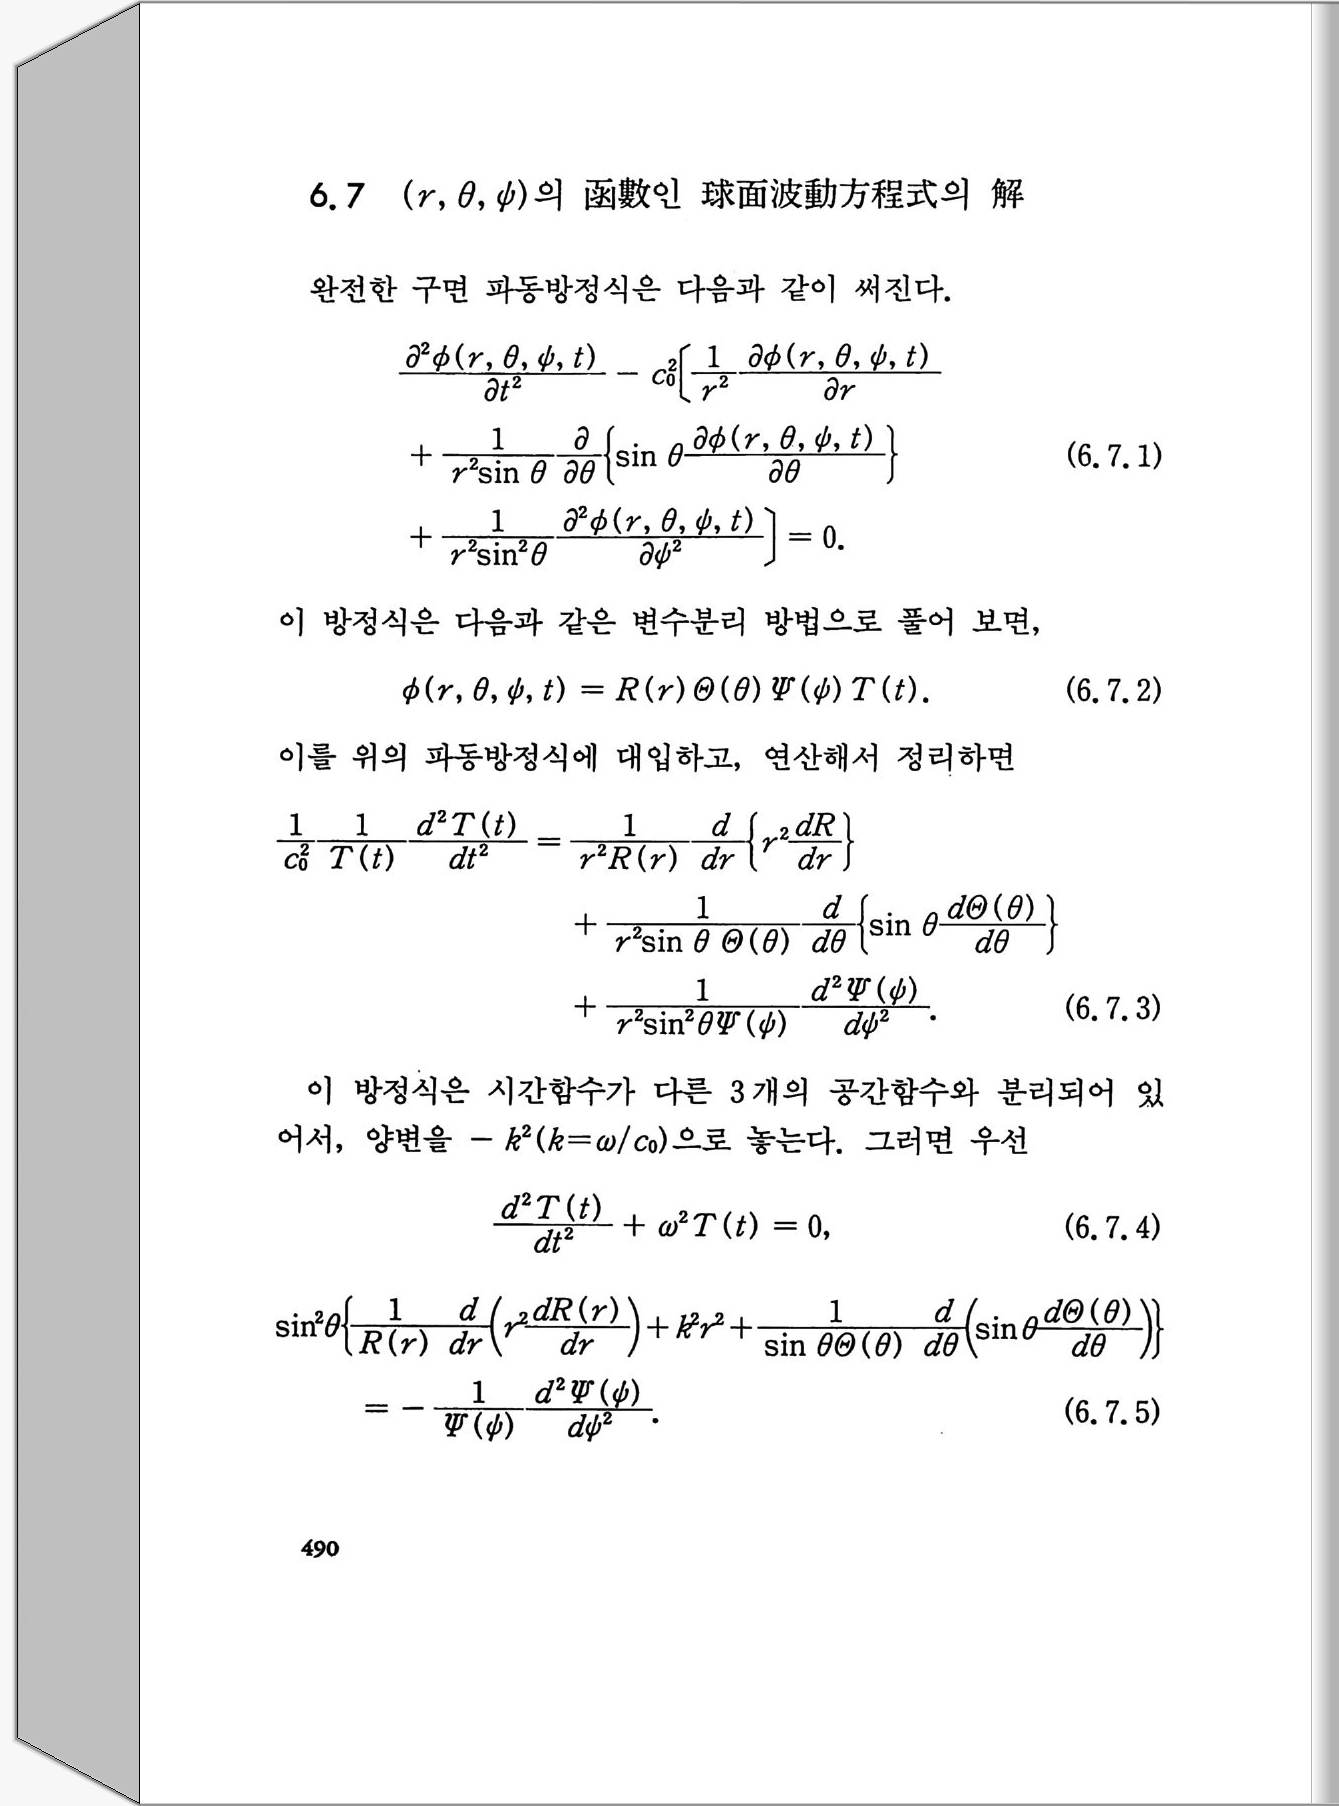 6.7 (r, θ, ψ)의 函數인 球面波動方程式의 解
완전한 구면 파동방정식은 다음과 같이 써진다.
\frac{∂²ϕ(r, θ, ψ, t)}{∂t²} − c₀²[\frac{1}{r²} \frac{∂ϕ(r, θ, ψ, t)}{∂r}
+ \frac{1}{r² sin θ} \frac{∂}{∂θ}{sin θ \frac{∂ϕ(r, θ, ψ, t)}{∂θ}} (6.7.1)
+ \frac{1}{r² sin² θ} \frac{∂²ϕ(r, θ, ψ, t)}{∂ψ²}] = 0.
이 방정식은 다음과 같은 변수분리 방법으로 풀어 보면,
ϕ(r, θ, ψ, t) = R(r) Θ(θ) Ψ(ψ) T(t). (6.7.2)
이를 위의 파동방정식에 대입하고, 연산해서 정리하면
\frac{1}{c₀²} \frac{1}{T(t)} \frac{d²T(t)}{dt²} = \frac{1}{r²R(r)} \frac{d}{dr}{r² \frac{dR}{dr}}
+ \frac{1}{r² sin θ Θ(θ)} \frac{d}{dθ}{sin θ \frac{dΘ(θ)}{dθ}}
+ \frac{1}{r² sin² θΨ(ψ)} \frac{d²Ψ(ψ)}{dψ²}. (6.7.3)
이 방정식은 시간함수가 다른 3개의 공간함수와 분리되어 있
어서, 양변을 − k²(k=ω/c₀)으로 놓는다. 그러면 우선
\frac{d²T(t)}{dt²} + ω²T(t) = 0, (6.7.4)
sin²θ{\frac{1}{R(r)} \frac{d}{dr}(r² \frac{dR(r)}{dr}) + k²r² + \frac{1}{sin θΘ(θ)} \frac{d}{dθ}(sin θ \frac{dΘ(θ)}{dθ})}
= − \frac{1}{Ψ(ψ)} \frac{d²Ψ(ψ)}{dψ²}. (6.7.5)
490